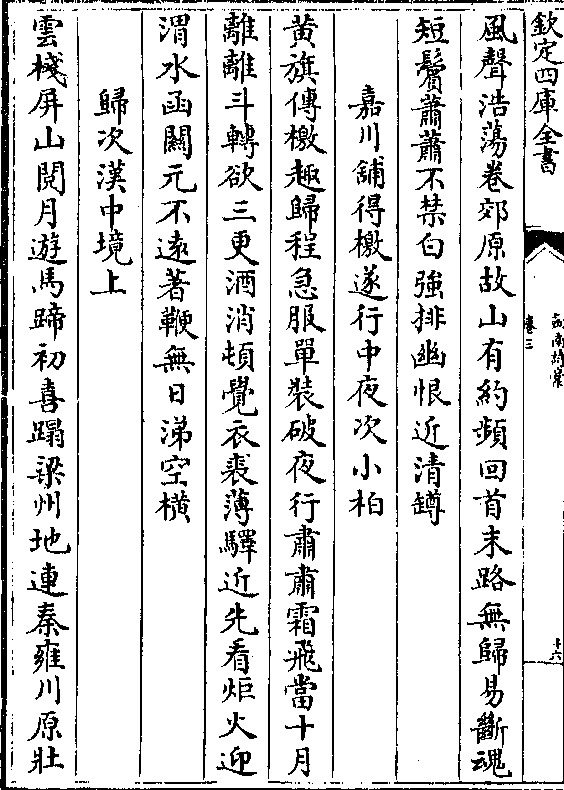 欽定四庫全書
劍南詩藁
卷三
十六
風聲浩蕩卷郊原故山有約頻回首末路無歸易斷魂
短鬢蕭蕭不禁白強排幽恨近清罇
嘉川舖得檄遂行中夜次小柏
黄旗傳檄趣歸程急服單裝破夜行肅肅霜飛當十月
離離斗轉欲三更酒消頓覺衣裘薄驛近先看炬火迎
渭水函關元不遠著鞭無日涕空横
歸次漢中境上
雲棧屏山閱月遊馬蹄初喜蹋梁州地連秦雍川原壯